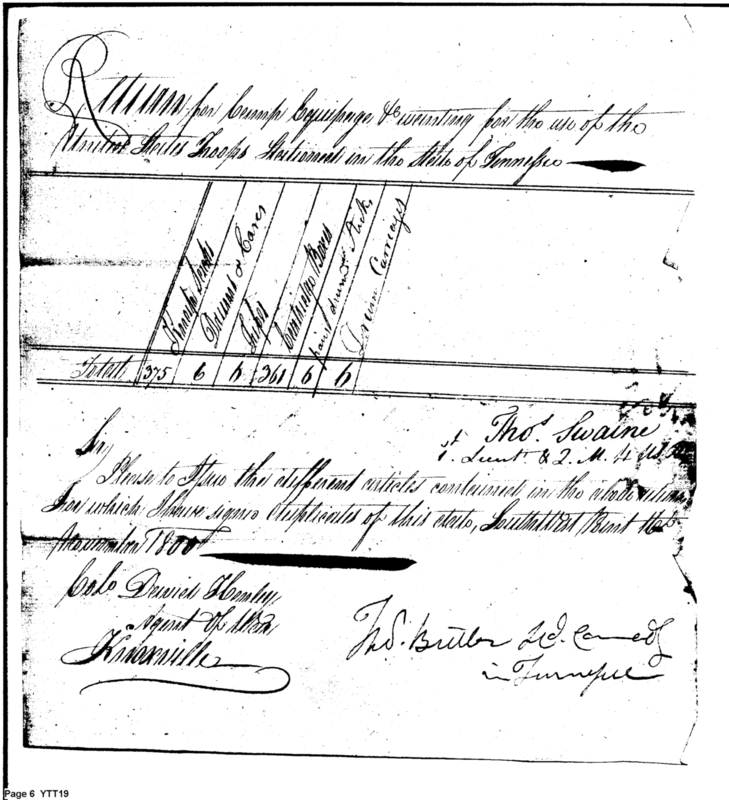 Return for Camp Equipage &c wanting for the use of the
United States Troops Stationed in the State of Tennessee
Knapsacks
Drums & Cases
Fifes
Cartridge Boxes
pairs drum Sticks
Drum Carriages
Total 375 6 6 361 6 6
Thos. Swaine
1st. Lieut. & Q. M. 4
Sir
Please to Issue the different articles contained in the above return
for which I have signed duplicates of this date, South West Point
November 1800
Colo David Henley
Agent of War
Knaxville
Tho. Butler Comdg
in Tennessee
Page 6 YTT19